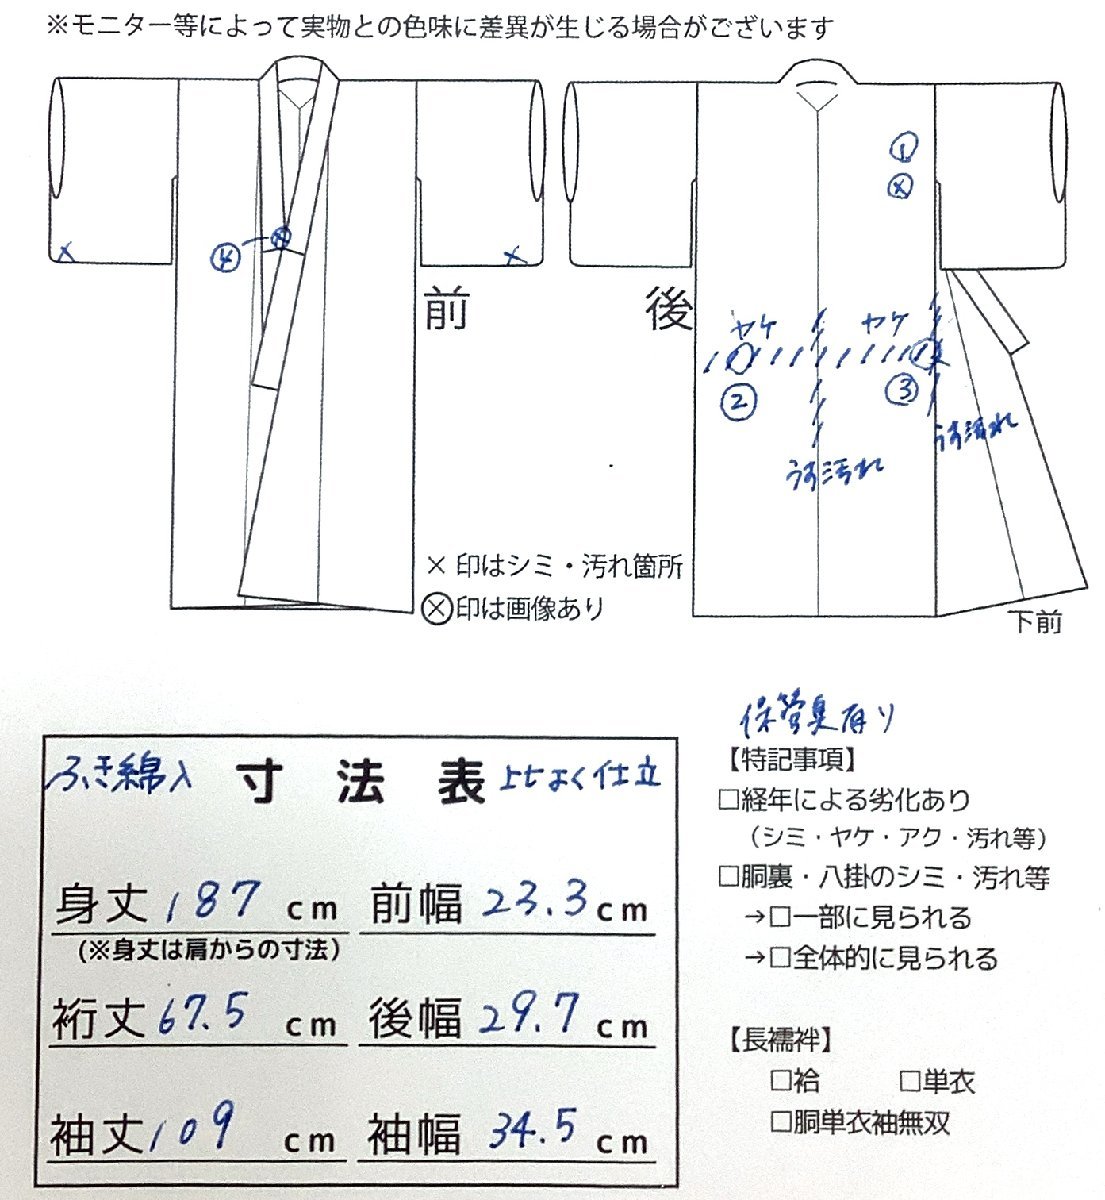 ※モニター等によって実物との色味に差異が生じる場合がございます
①
ⓧ
④
×
×
前
後
ヤケ
ヤケ
②
③
うす汚れ
うす汚れ
× 印はシミ・汚れ箇所
ⓧ印は画像あり
下前
保管臭有り
【特記事項】
□経年による劣化あり
（シミ・ヤケ・アク・汚れ等）
□胴裏・八掛のシミ・汚れ等
→□一部に見られる
→□全体的に見られる
【長襦袢】
□袷 □単衣
□胴単衣袖無双
ふき綿入 寸法表 比よく仕立
身丈 187 cm 前幅 23.3 cm
(※身丈は肩からの寸法)
裄丈 67.5 cm 後幅 29.7 cm
袖丈 109 cm 袖幅 34.5 cm